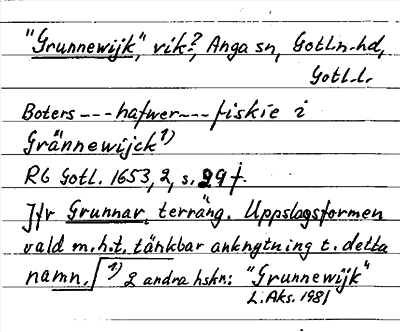 "Grunnewijk", vik?, Anga sn, Gotl.n.hd,
Gotl.l.
Boters --- hafwer --- fiskie i
Grännewijck 1)
RG Gotl. 1653, 2, s. 29 f.
Jfr Grunnar, terräng. Uppslagsformen
vald m.h.t. tänkbar anknytning t. detta
namn. 1) 2 andra hskn: "Grunnewijk"
L. Aks. 1981